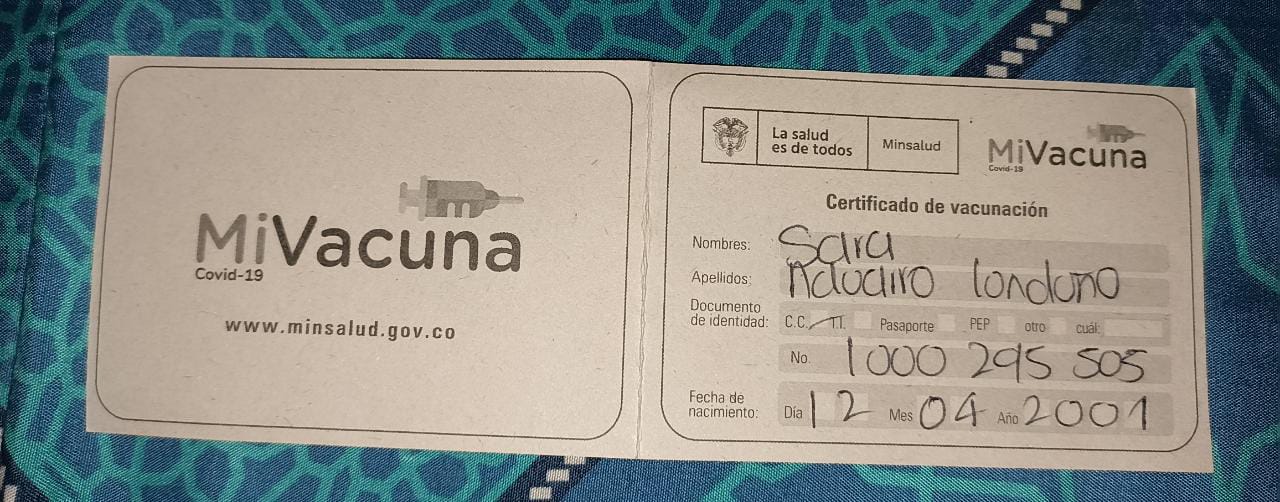 MiVacuna
Covid-19
www.minsalud.gov.co
La salud
es de todos
Minsalud
MiVacuna
Covid-19
Certificado de vacunación
Nombres: Sara
Apellidos: londono
Documento
de identidad: C.C. T.I. Pasaporte PEP otro cuál:
No. 1000 295 505
Fecha de
nacimiento: Día 12 Mes 04 Año 2001